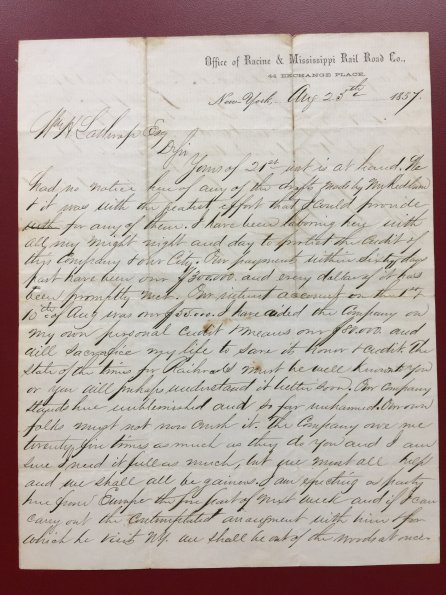 Office of Racine & Mississippi Rail Road Co.,
44 EXCHANGE PLACE,
New-York, Aug 25th 1857.
Wm H Lathrop Esq
D Sir
Yours of 21st inst is at hand. We
had no notice here of any of the drafts made by
& it was with the greatest effort that I could provide
for any of them. I have been laboring here with
all my might night and day to protect the credit of
this Company & our City. Our payments within Sixty days
past have been over $300,000. and every dollar of it has
been promptly met. Our interest account on the 1st &
10th of Aug was over $55000. I have aided the Company on
my own personal credit & means over $80000. and
will sacrifice my life to save its honor & credit. The
state of the times for Railroads must be well known to you
or you will perhaps understand it better soon. Our Company
stands here unblemished and so far unharmed. Our own
folks must not now crush it. The Company owe me
twenty five times as much as they do you and I am
sure I need it full as much, but we must all help
and we shall all be gainers. I am expecting a party
here from Europe the fore part of next week and if I can
carry out the contemplated arrangement with him & for
which he visits NY. we shall be out of the woods at once.